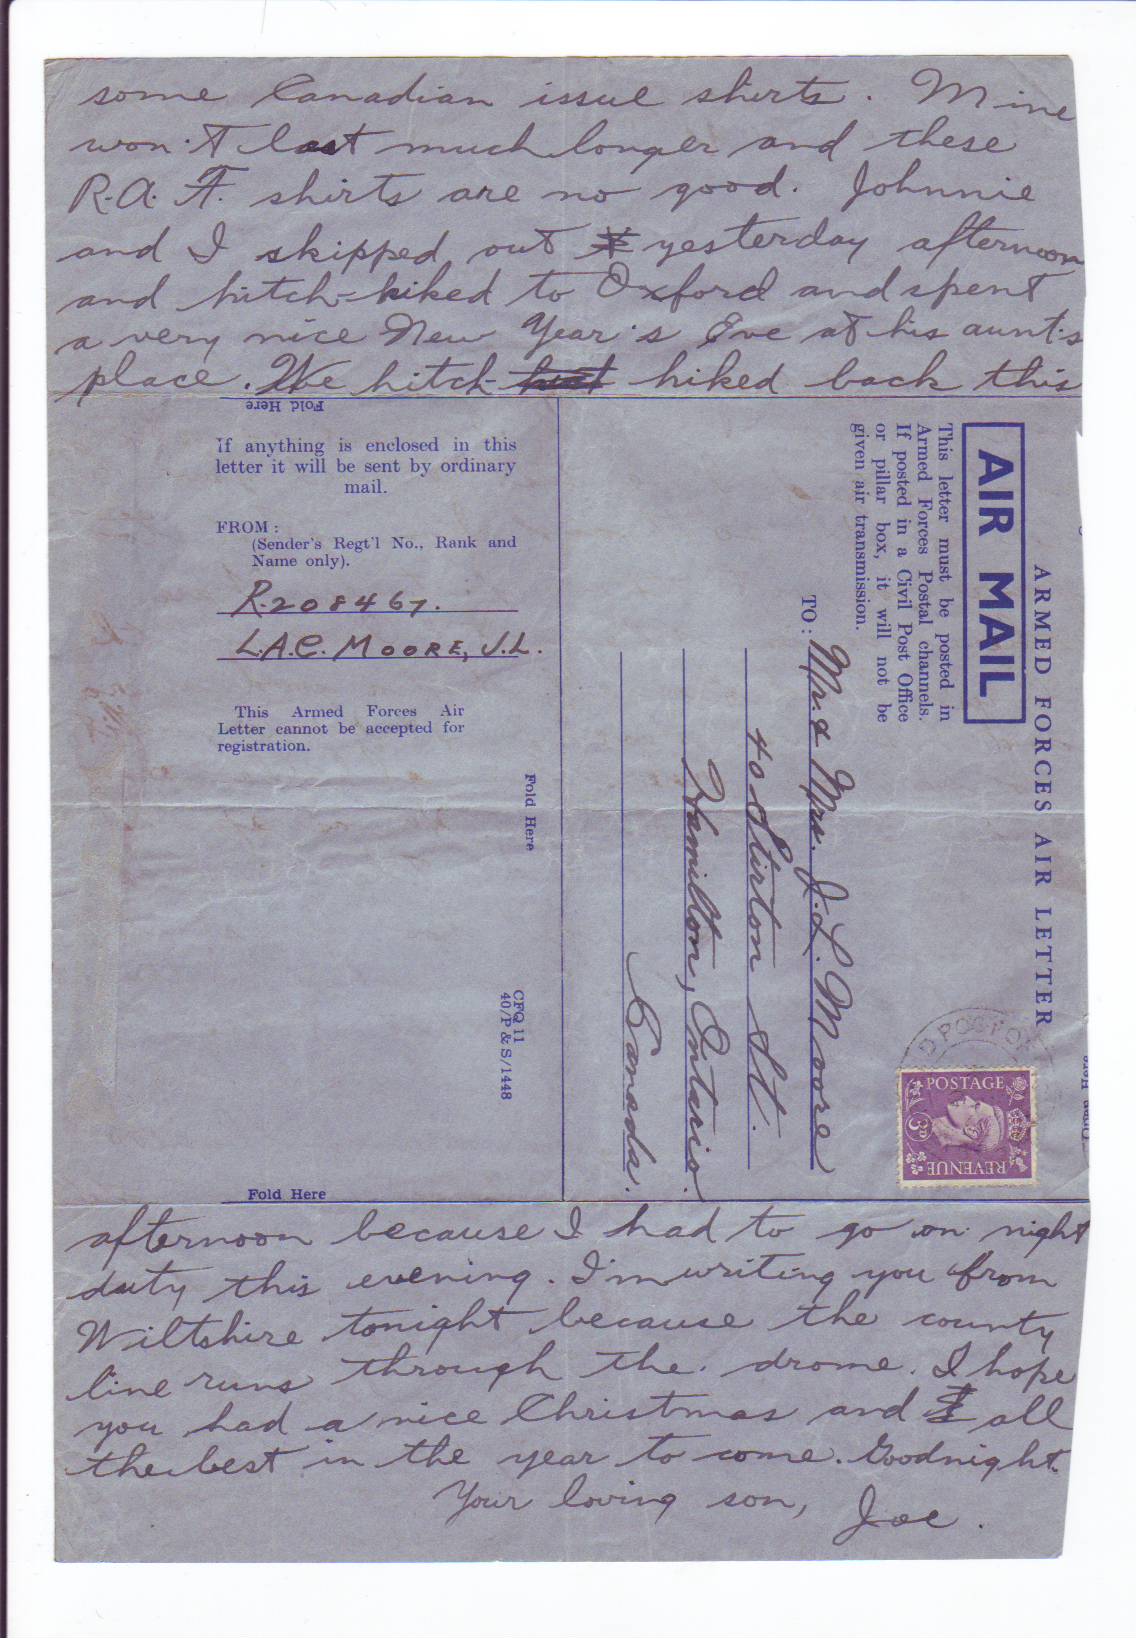 some Canadian issue shirts. Mine
won't last much longer and these
R.A.F. shirts are no good. Johnnie
and I skipped out yesterday afternoon
and hitch-hiked to Oxford and spent
a very nice New Year's Eve at his aunt's
place. We hitch- hiked back this
Fold Here
If anything is enclosed in this
letter it will be sent by ordinary
mail.
FROM :
(Sender's Regt'l No., Rank and
Name only).
R.208467.
L.A.C. MOORE, J.L.
This Armed Forces Air
Letter cannot be accepted for
registration.
Fold Here
CFQ 11
40/P & S/1448
Fold Here
ARMED FORCES AIR LETTER
AIR MAIL
This letter must be posted in
Armed Forces Postal channels.
If posted in a Civil Post Office
or pillar box, it will not be
given air transmission.
TO: Mr. & Mrs. J. L. Moore
40 Stirton St.
Hamilton, Ontario.
Canada.
POSTAGE
3D
REVENUE
Open Here
afternoon because I had to go on night
duty this evening. I'm writing you from
Wiltshire tonight because the county
line runs through the. drome. I hope
you had a nice Christmas and all
the best in the year to come. Goodnight.
Your loving son, Joe.